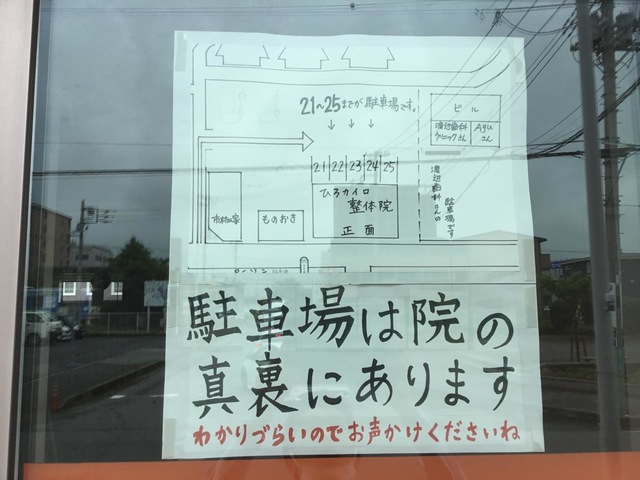 21〜25までが駐車場です。
↓ ↓ ↓
ビル
渡辺歯科
クリニックさん
Aguさん
21 22 23 24 25
ひろカイロ
整体院
正面
ものおき
渡辺歯科さんの
駐車場です
駐車場は院の
真裏にあります
わかりづらいのでお声かけくださいね